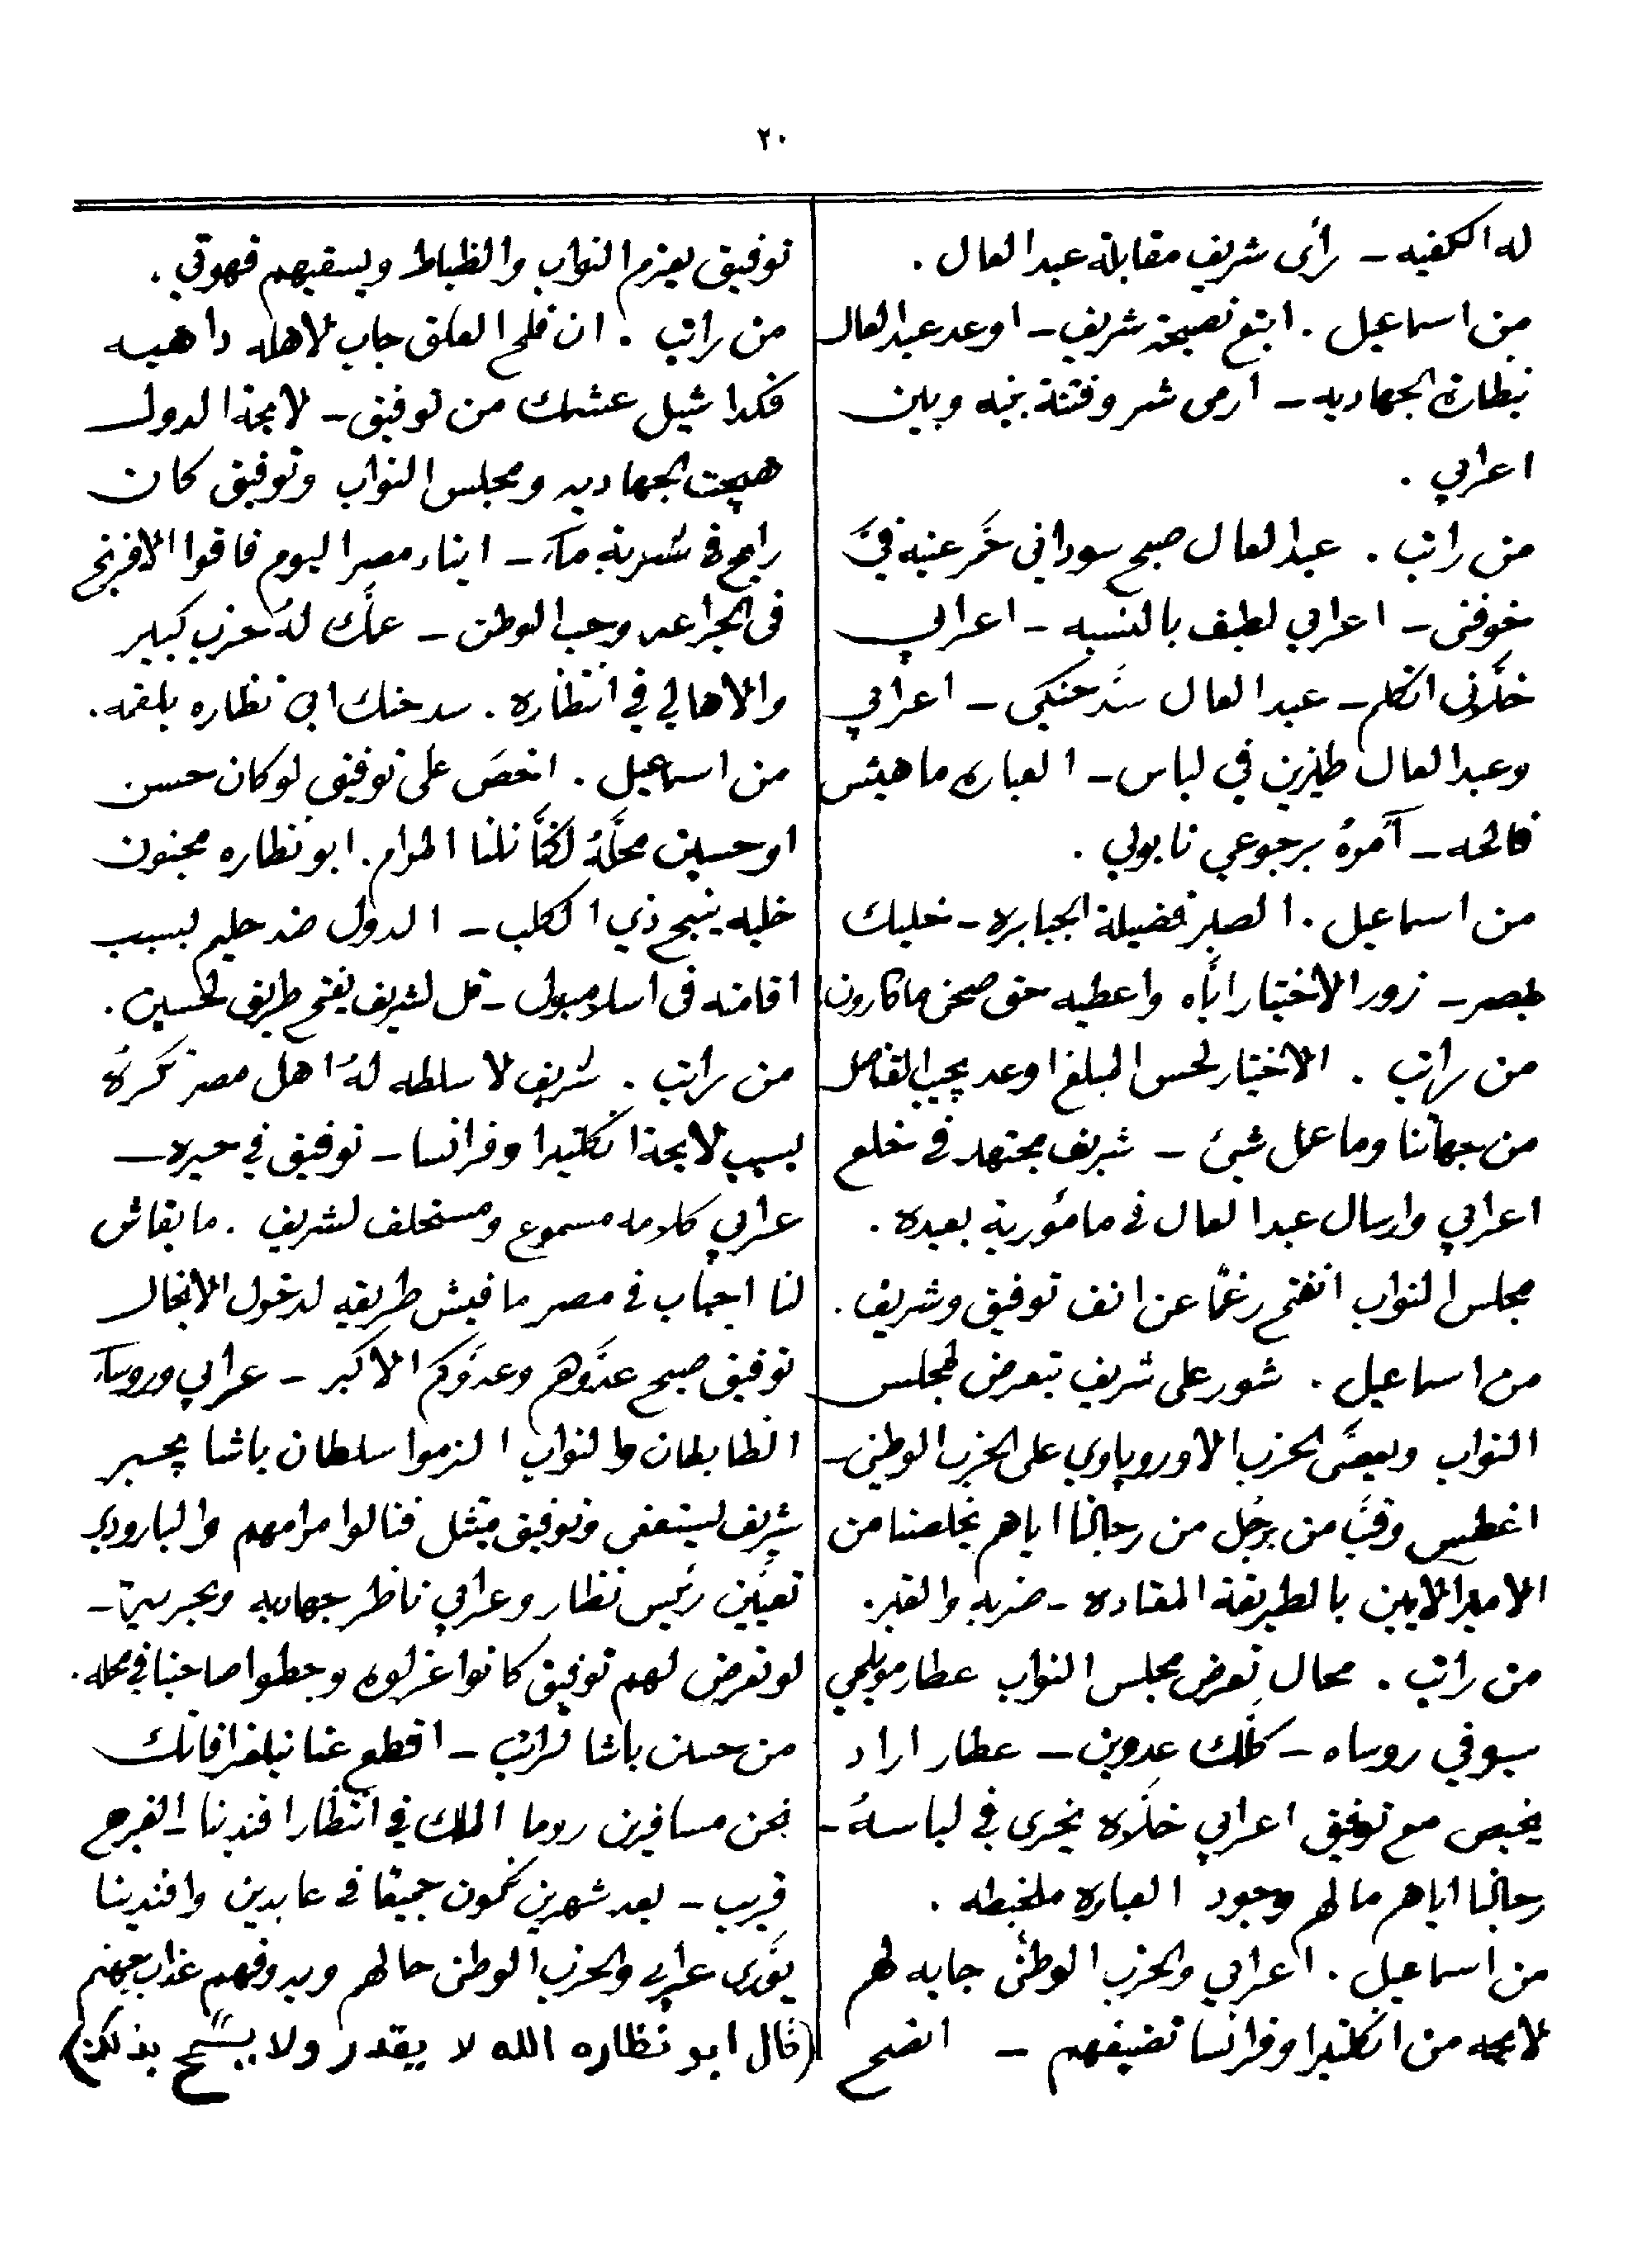 ٢٠
له الكفيه ــ رأى شريف مقابلة عبد العال .
من اسماعيل . اتبع نصيحة شريف ــ اوعد عبد العال
بنظارة الجهاديه ــ ارمى شر وفتنة بينه وبين
اعرابي .
من راتب . عبد العال صبح سوداني حَمَر عنيه فيَّ
خوفنى ــ اعرابي لطيف بالنسبه ــ اعرابي
خلَّانى اتكلم ــ عبد العال سَدَّ حنكى ــ اعرابي
وعبد العال طيزين في لباس ــ العباره ماهيش
فالحه ــ آمرهُ برجوعي نابولي .
من اسماعيل . الصبر فضيلة الجبابره ــ خليك
بمصر ــ زور الاختيار اياه واعطيه حق صحن ماكارونا
من راتب . الاختيار لحس المبلغ اوعد يجيب القناصل
من جهاتنا وما عمل شيئ ــ شريف مجتهد فى خلع
اعرابي وارسال عبد العال فى مأمورية بعيده .
مجلس النواب انفتح رغمًا عن انف توفيق وشريف .
من اسماعيل . شور على شريف يتعرض لمجلس
النواب ويعصَّى الحزب الاوروپاوي على الحزب الوطنى ــ
اغطيس وقبَّ من برجُل من رجالنا اياهم يخلصنا من
الاميرالايين بالطريقة المعتاده ــ ضربه والقبر .
من راتب . محال تعرض مجلس النواب عطار مويلحي
سيوفي روساه ــ كلَّك عدوين ــ عطار اراد
يخبص مع توفيق اعرابي خلَّاه يخرى في لباسهُ ــ
رجالنا اياهم ما لهم وجود العباره ملخبطه .
من اسماعيل . اعرابي والحزب الوطنى جايه لهم
لايحه من انكلتيرا وفرانسا تضيفهم ــ انصح
توفيق يعزم النواب والظباط ويسقيهم قهوتي .
من راتب . ان فلح العلق جاب لاهله داهيه
فكدا شيل عشمك من توفيق ــ لايحة الدول
هيجت الجهاديه ومجلس النواب وتوفيق كان
رايح فى شربة ميَّه ــ ابناء مصر اليوم فاقوا الافرنج
فى الجراعه وحب الوطن ــ عمَّك لهُ حزب كبير
والاهالي في انتظاره . سد حنك ابى نظاره بلقمه .
من اسماعيل . اخصَ على توفيق لو كان حسن
او حسين محلَّهُ لكنَّا نلنا المرام . ابو نظاره مجنون
خليه ينبح ذي الكلب ــ الدول ضد حليم بسبب
اقامته فى اسلامبول ــ قل لشريف يفتح طريق لحسين .
من راتب . شريف لا سلطه لهُ اهل مصر تكرهُ
بسبب لايحة انكلتيرا وفرانسا ــ توفيق في حيره ــ
عرابي كلامه مسموع ومستحلف لشريف . ما بقاش
لنا احباب فى مصر مافيش طريقه لدخول الانجال
توفيق صبح عدوّهم وعدوّكم الاكبر ــ عرابي وروساء
الظابطان والنواب الزموا سلطان باشا يجبر
شريف ليستعفى وتوفيق يمتثل فنالوا مرامهم والبارودي
تعيَّن رئيس نظار وعرابي ناظر جهاديه وبحريية ــ
لو تعرض لهم توفيق كانوا عزلوه وحطوا صاحبنا في محله .
من حسن باشا لراتب ــ اقطع عنا تيلغرافاتك
نحن مسافرين روما الملك في انتظار افندينا ــ الفرج
قريب ــ بعد شهرين نكون جميعًا فى عابدين وافندينا
يورَّى عرابي والحزب الوطنى حالهم ويدوقهم عذاب جهنم
(قال ابو نظاره الله لا يقدر ولا يسمح بذلك)